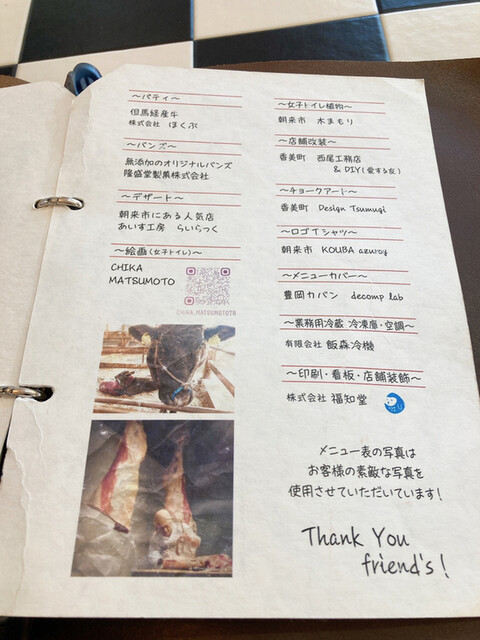 ～パティ～
但馬経産牛
株式会社 ほくぶ
～バンズ～
無添加のオリジナルバンズ
隆盛堂製菓株式会社
～デザート～
朝来市にある人気店
あいす工房 らいらっく
～絵画(女子トイレ)～
CHIKA
MATSUMOTO
CHIKA_MATSUMOTO78
～女子トイレ植物～
朝来市 木まもり
～店舗改装～
香美町 西尾工務店
& DIY(愛する友)
～チョークアート～
香美町 Design Tsumugi
～ロゴTシャツ～
朝来市 KOUBA azwoy
～メニューカバー～
豊岡カバン decomp lab
～業務用冷蔵 冷凍庫・空調～
有限会社 飯森冷機
～印刷・看板・店舗装飾～
株式会社 福知堂
メニュー表の写真は
お客様の素敵な写真を
使用させていただいています!
Thank You
friend's!